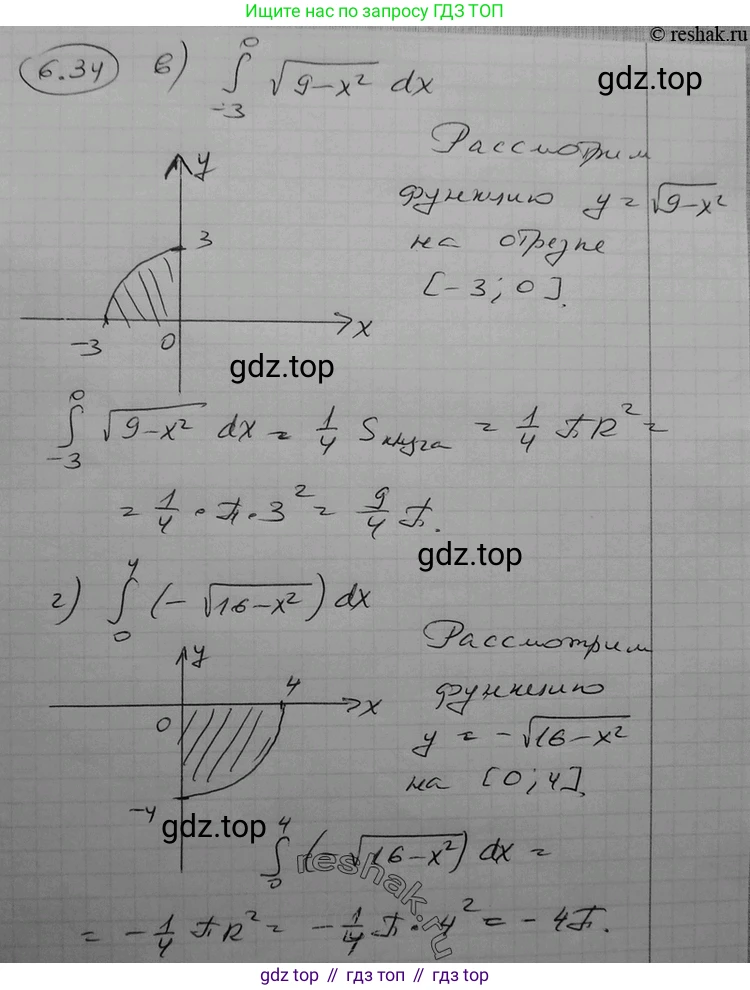 Ищите нас по запросу ГДЗ ТОП
© reshak.ru
6.34 в) ∫₋₃⁰ √(9−x²) dx
gdz.top
Рассмотрим
функцию y = √(9−x²)
на отрезке
[−3; 0].
y
3
−3 0 x
gdz.top
∫₋₃⁰ √(9−x²) dx = 1/4 Sкруга = 1/4 πR² =
= 1/4 · π · 3² = 9/4 π.
gdz.top
г) ∫₀⁴ (−√(16−x²)) dx
Рассмотрим
функцию
y = −√(16−x²)
на [0; 4].
y
0 4 x
−4
gdz.top
∫₀⁴ (−√(16−x²)) dx =
reshak.ru
= −1/4 πR² = −1/4 π · 4² = −4π.
gdz.top // гдз топ // gdz.top